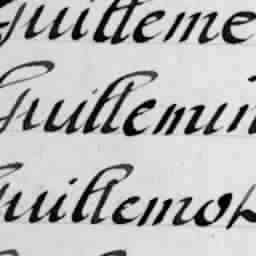 Guilleme
Guillemin
Guillemot